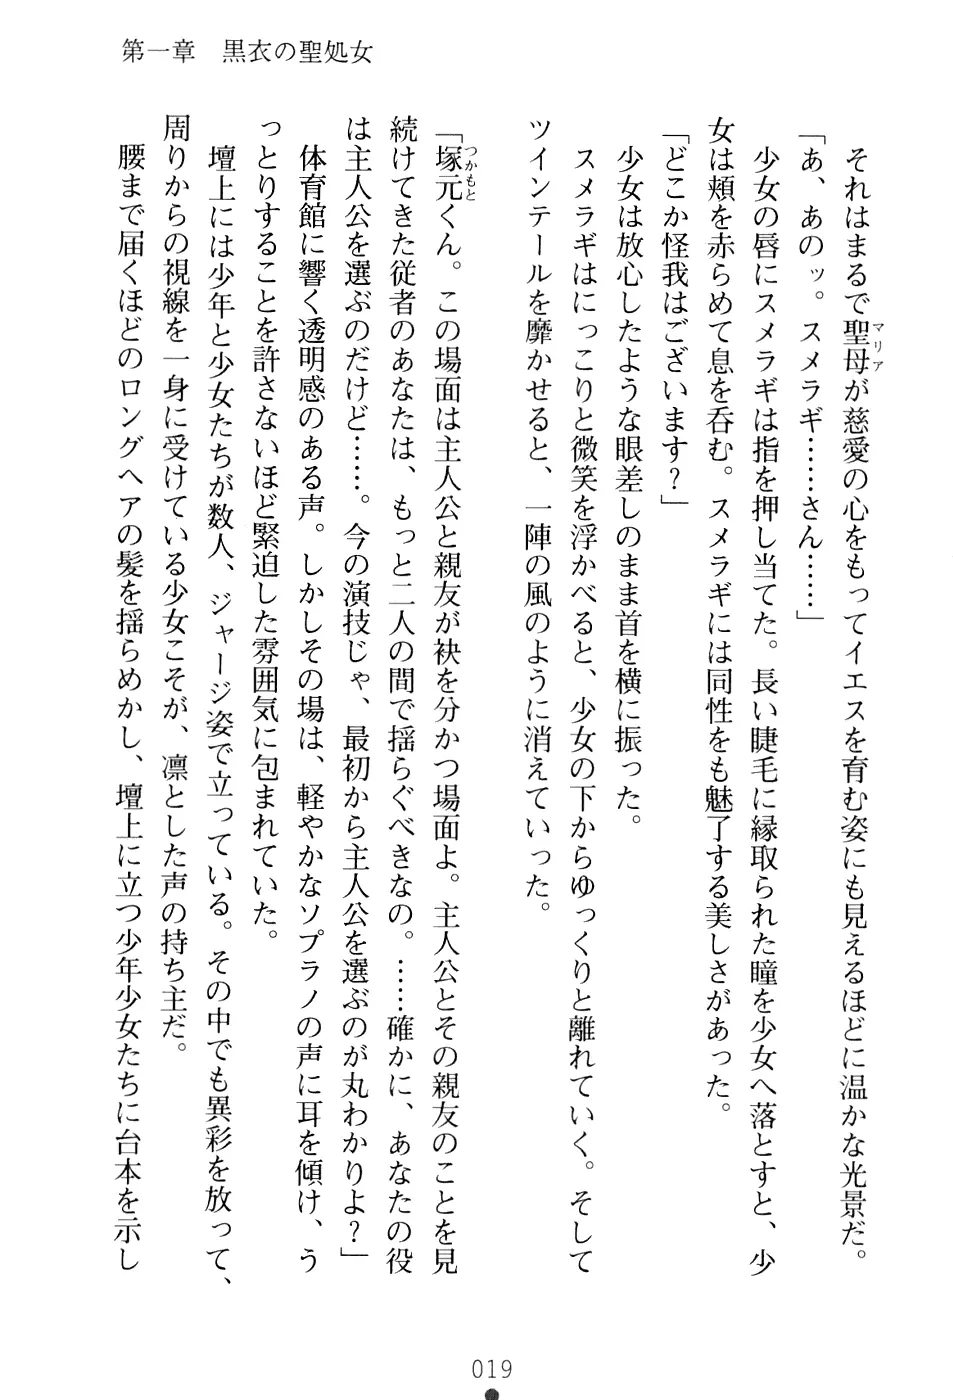 第一章　黒衣の聖処女
それはまるで聖母マリアが慈愛の心をもってイエスを育む姿にも見えるほどに温かな光景だ。
「あ、あのッ。スメラギ……さん……」
少女の唇にスメラギは指を押し当てた。長い睫毛に縁取られた瞳を少女へ落とすと、少
女は頬を赤らめて息を呑む。スメラギには同性をも魅了する美しさがあった。
「どこか怪我はございます？」
少女は放心したような眼差しのまま首を横に振った。
スメラギはにっこりと微笑を浮かべると、少女の下からゆっくりと離れていく。そして
ツインテールを靡かせると、一陣の風のように消えていった。
「塚元つかもとくん。この場面は主人公と親友が袂を分かつ場面よ。主人公とその親友のことを見
続けてきた従者のあなたは、もっと二人の間で揺らぐべきなの。……確かに、あなたの役
は主人公を選ぶのだけど……。今の演技じゃ、最初から主人公を選ぶのが丸わかりよ？」
体育館に響く透明感のある声。しかしその場は、軽やかなソプラノの声に耳を傾け、う
っとりすることを許さないほど緊迫した雰囲気に包まれていた。
壇上には少年と少女たちが数人、ジャージ姿で立っている。その中でも異彩を放って、
周りからの視線を一身に受けている少女こそが、凛とした声の持ち主だ。
腰まで届くほどのロングヘアの髪を揺らめかし、壇上に立つ少年少女たちに台本を示し
019